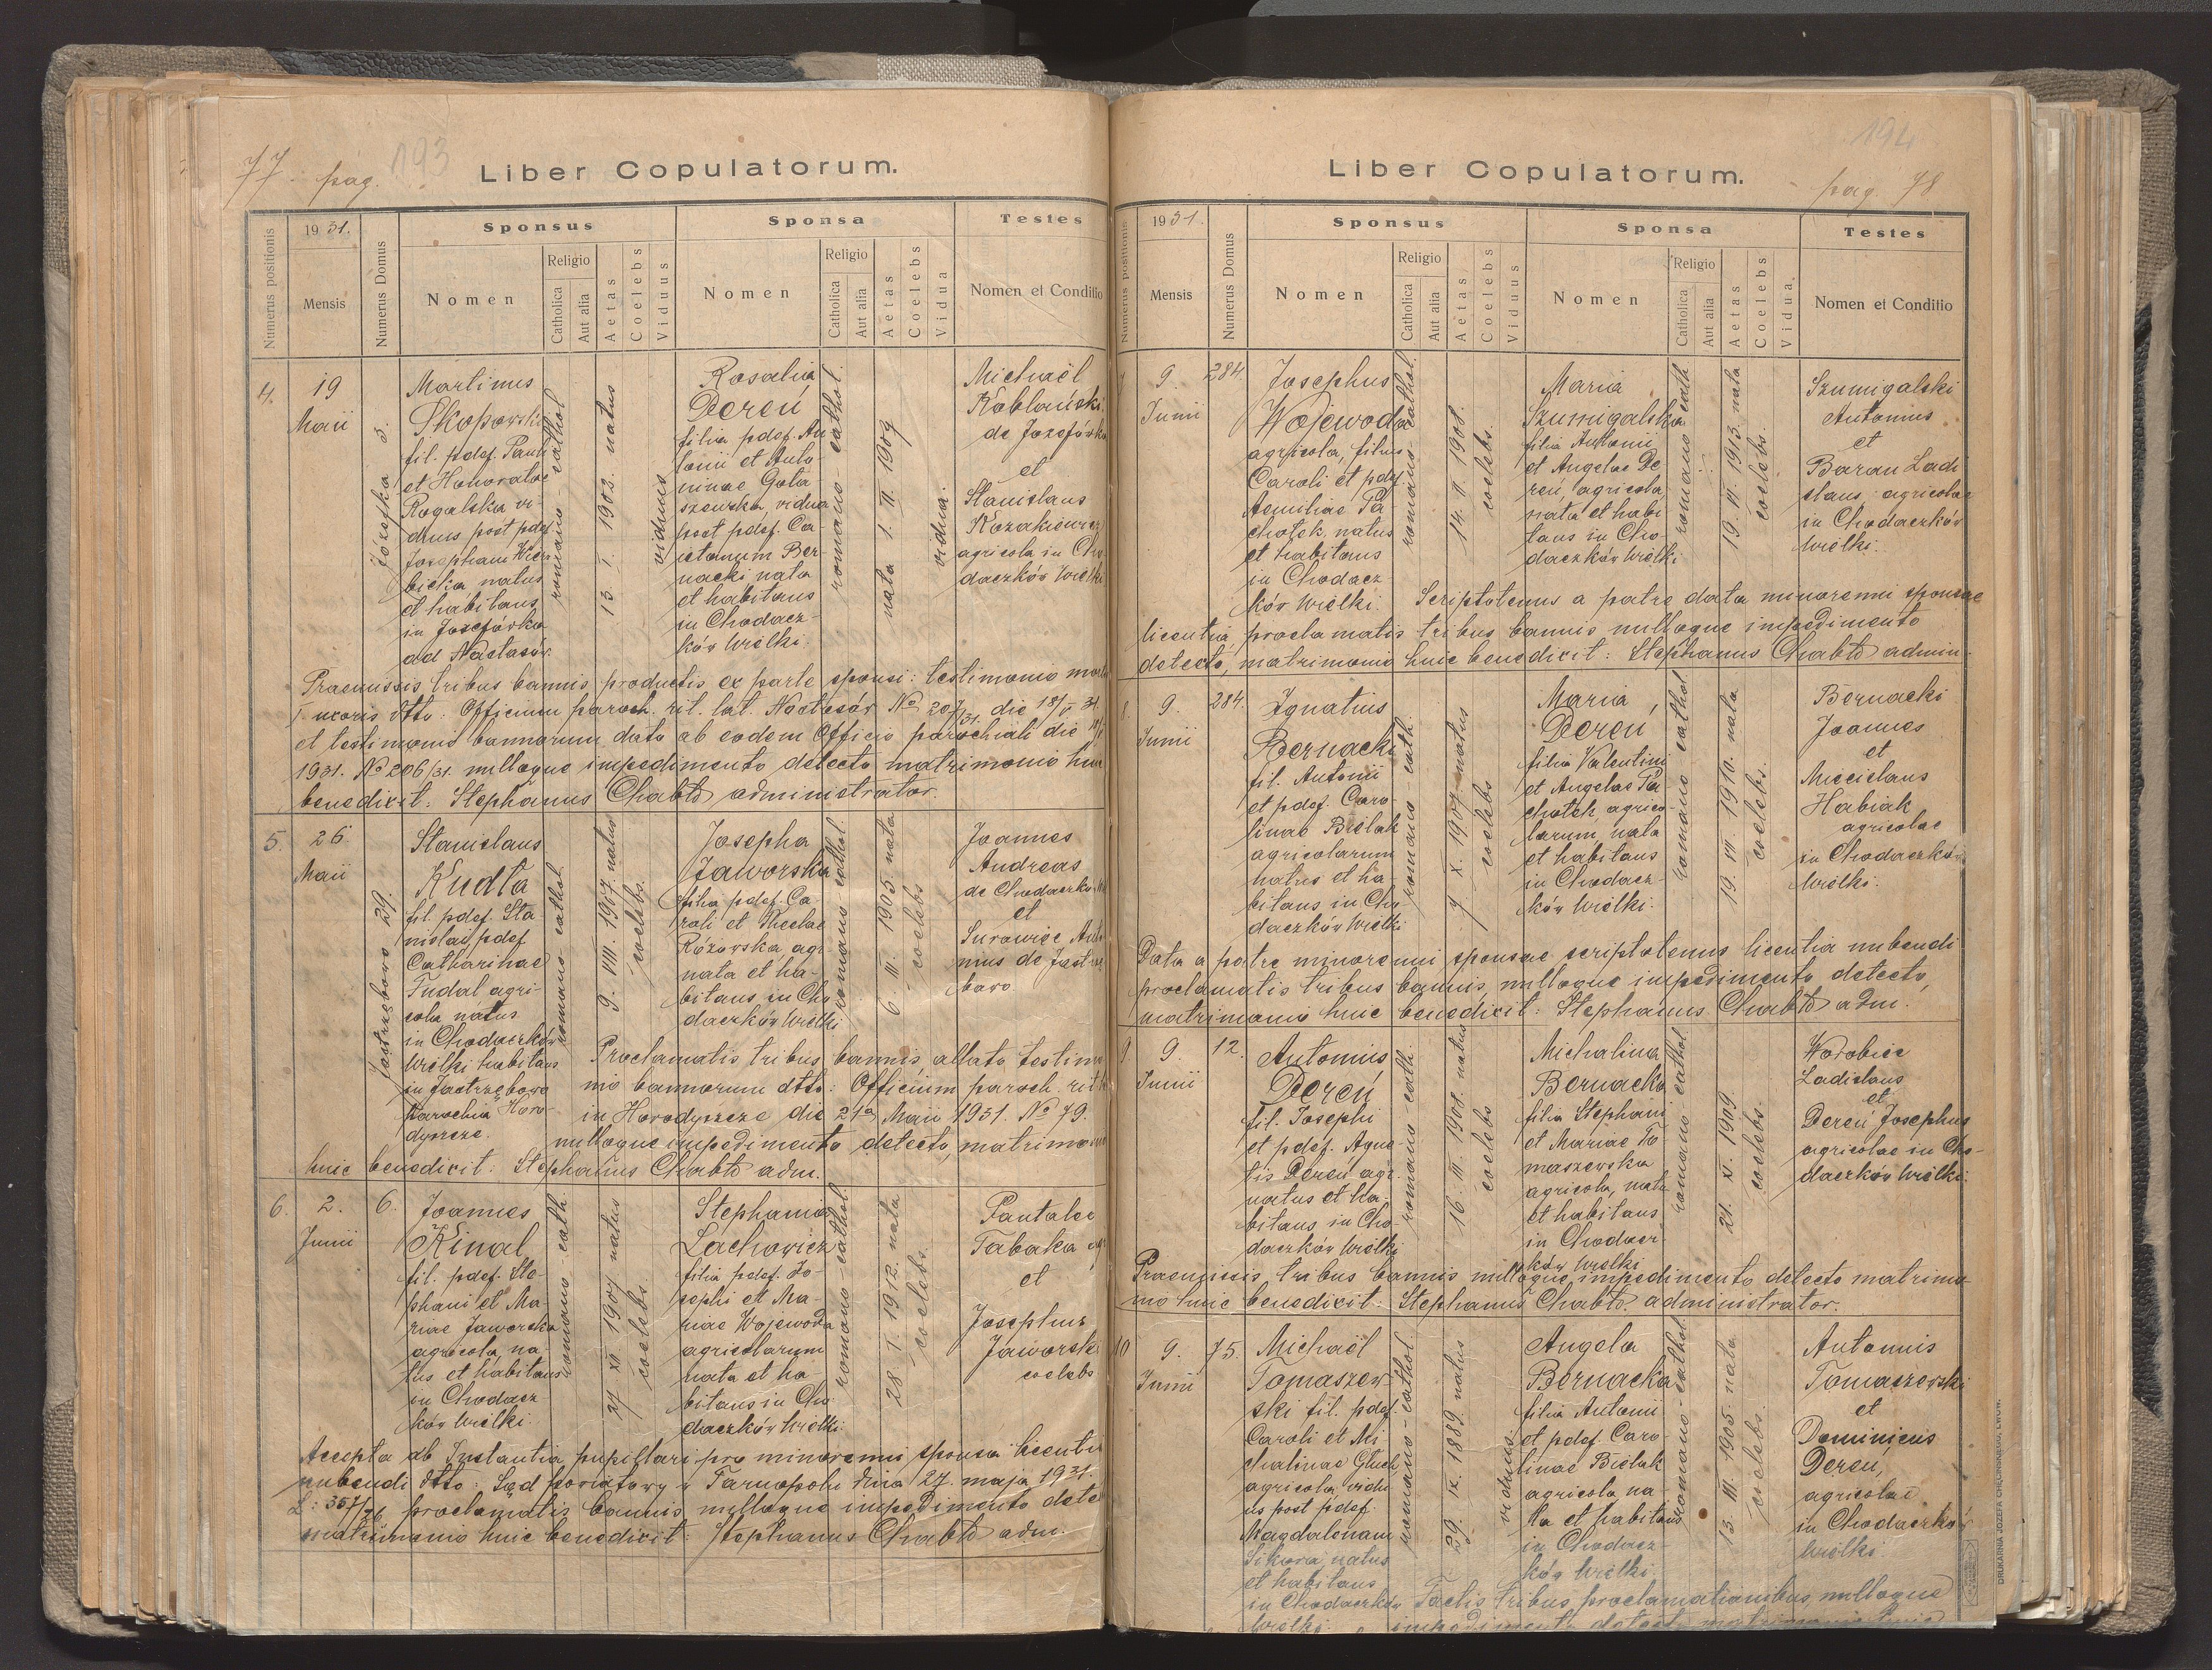 77. pag.
193
Liber Copulatorum.
Numerus positionis
1931.
Mensis
Numerus Domus
Sponsus
Nomen
Religio
Catholica
Aut alia
Aetas
Coelebs
Viduus
Sponsa
Nomen
Religio
Catholica
Aut alia
Aetas
Coelebs
Vidua
Testes
Nomen et Conditio
4.
19
Maii
Józefka 3.
Martinus
Skoporski
fil. pdef. Pauli
et Honoratae
Rogalska vi-
duus post pdef.
Josepham Wierz
bicka natus
et habitans
in Josefówka
ad Nastasów.
romano-cathol
13. I. 1903. natus
viduus
Rosalia
Dereń
filia pdef. An
tonii et Anto-
ninae Gola
szewska, vidua
post pdef. Ca-
jetanum Ber-
nacki nata
et habitans
in Chodacz-
ków Wielki.
romano-cathol.
nata 1. II. 1909
vidua.
Michaël
Koblański
de Jozefówka
et
Stanislaus
Kozakiewicz
agricola in Cho-
daczków Wielki
Praemissis tribus bannis, productis ex parte sponsi: testimonio mortis
I uxoris dtto: Officium paroch. rit. lat. Nastasów No 207/31. die 18/V 31.
et testimonio bannorum dato ab eodem Officio parochiali die 18/V
1931. No 206/31. nulloque impedimento detecto matrimonio huic
benedixit: Stephanus Chabło administrator.
5.
26.
Maii
Jastrzębowo 29.
Stanislaus
Kudła
fil. pdef. Sta-
nislai, pdef
Catharinae
Fudal agri-
cola natus
in Chodaczków
Wielki habitans
in Jastrzębowo
Parochia Horo-
dyszcze.
romano-cathol.
9. VIII. 1907. natus
coelebs.
Josepha
Jaworska
filia pdef. Ca
roli et Theclae
Rózowska, agr.
nata et ha-
bitans in Cho
daczków Wielki
romano cathol.
6. III. 1905. nata
coelebs
Joannes
Andreas
de Chodaczków W.
et
Surowiec Anto
nius de Jastrzę
bowo
Proclamatis tribus bannis, allato testimo
nio bannorum dtto: Officium paroch. rit. l.
in Horodyszcze die 21a Maii 1931. No 79.
nulloque impedimento detecto, matrimonio
huic benedixit: Stephanus Chabło adm.
6.
2.
Junii
6.
Joannes
Kinal
fil. pdef. Ste-
phani et Ma
riae Jaworska
agricola, na-
tus et habitans
in Chodacz
ków Wielki.
romano-cath.
27. XI. 1907 natus
coelebs
Stephania
Lachowicz
filia pdef. Jo-
sephi et Ma-
riae Wojewoda
agricolarum
nata et ha
bitans in Cho
daczków Wielki.
romano-cathol
28. I. 1912. nata
coelebs.
Pantaleo
Tabaka agr
et
Josephus
Jaworski
coelebs
Accepta ab Instantia pupillari pro minorenni sponsa licentia
nubendi dtto: Sąd powiatowy w Tarnopolu dnia 27. maja 1931.
L: 357/26 proclamatis bannis nulloque impedimento detecto
matrimonio huic benedixit: Stephanus Chabło adm.
194
pag. 78
Liber Copulatorum.
Numerus positionis
1931.
Mensis
Numerus Domus
Sponsus
Nomen
Religio
Catholica
Aut alia
Aetas
Coelebs
Viduus
Sponsa
Nomen
Religio
Catholica
Aut alia
Aetas
Coelebs
Vidua
Testes
Nomen et Conditio
7
9.
Junii
284.
Josephus
Wojewoda
agricola, filius
Caroli et pdef.
Aemiliae Pa
chołek, natus
et habitans
in Chodacz
ków Wielki.
romano-cathol.
14. II. 1908.
coelebs.
Maria
Szumigalska
filia Antonii
et Angelae De
reń, agricola,
nata et habi
tans in Cho-
daczków Wielki
romano cath
19. III. 1913. nata
coelebs.
Szumigalski
Antonius
et
Baran Ladi
slaus, agricolae
in Chodaczków
Wielki.
Scriptotenus a patre data minorenni sponsae
licentia, proclamatis tribus bannis nulloque impedimento
detecto, matrimonio huic benedixit: Stephanus Chabło admin-
8.
9.
Junii
284.
Ignatius
Bernacki
fil. Antonii
et pdef. Caro-
linae Bielak
agricolarum
natus et ha-
bitans in Cho
daczków Wielki
romano-cath.
7. X. 1907 natus
coelebs
Maria
Dereń
filia Valentini
et Angelae Pa
chołek, agrico-
larum, nata
et habitans
in Chodacz-
ków Wielki.
romano-cathol
19. VII. 1910. nata
coelebs.
Bernacki
Joannes
et
Miecislaus
Habiak
agricolae
in Chodaczków
Wielki.
Data a patre minorenni sponsae scriptotenus licentia nubendi
proclamatis tribus bannis, nulloque impedimento detecto,
matrimonio huic benedixit: Stephanus Chabło adm.
9.
9.
Junii
12.
Antonius
Dereń
fil. Josephi
et pdef. Agne-
tis Dereń agr.
natus et ha-
bitans in Cho-
daczków Wielki
romano-cath.
16. III. 1908. natus
coelebs
Michalina
Bernacka
filia Stephani
et Mariae To
maszewska
agricola, nata
et habitans
in Chodacz-
ków Wielki
romano cathol.
21. XI. 1909
coelebs.
Worobiec
Ladislaus
et
Dereń Josephus
agricolae in Cho-
daczków Wielki.
Praemissis tribus bannis nulloque impedimento detecto matrimo-
nio huic benedixit: Stephanus Chabło administrator.
10
9.
Junii
75.
Michaël
Tomaszew
ski fil. pdef.
Caroli et Mi-
chalinae Głuch,
agricola vidu
us post pdef.
Magdalenam
Sikora natus
et habitans
in Chodaczków
Wielki.
romano-cathol.
29. IX. 1889. natus
viduus
Angela
Bernacka
filia Antonii
et pdef. Caro-
linae Bielak
agricola na-
ta et habitans
in Chodacz-
ków Wielki.
romano-cathol.
13. III. 1905. nata
coelebs.
Antonius
Tomaszewski
et
Dominicus
Dereń,
agricolae
in Chodaczków
Wielki.
Factis tribus proclamationibus nulloque
impedimento detecto matrimonio huic
DRUKARNIA JÓZEF CHĘCIŃSKIEGO, LWÓW.